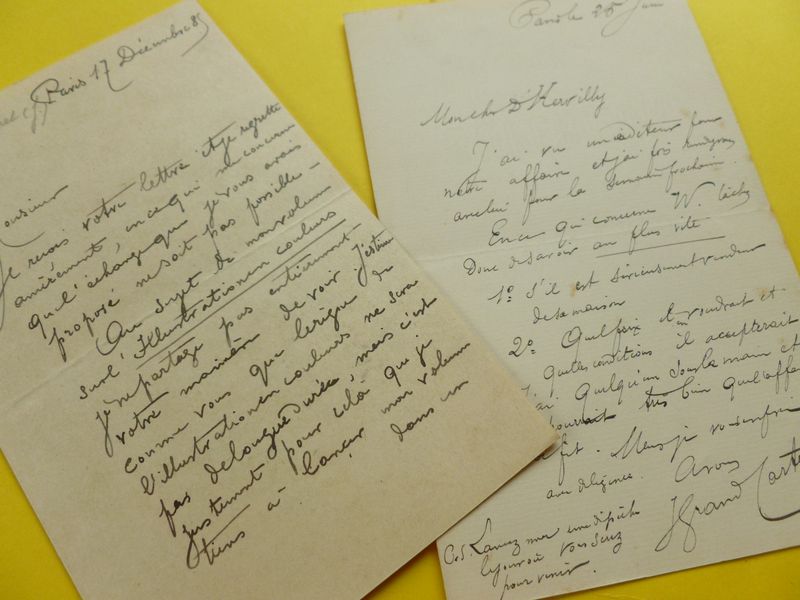 Paris 17 Décembre 85
Monsieur
Je reçois votre lettre et je regrette
amèrement, en ce qui me concerne
que l'échange que je vous avais
propose ne soit pas possible -
Au sujet de mon volume
sur l'illustration en couleurs
je ne partage pas entièrement
votre manière de voir. J'estime
comme vous que le règne de
l'illustration en couleurs ne sera
pas de longue durée, mais c'est
justement pour cela que je
tiens à lancer mon volume
dans un
Paris le 25 Juin
Mon cher D'Hervilly
J'ai vu un éditeur pour
notre affaire et j'ai pris rendez vous
avec lui pour la semaine prochaine.
En ce qui concerne W. tâchez
donc de savoir au plus vite
1º S'il est sérieusement vendeur
de sa maison
2º Quel prix il en voudrait et
quelles conditions il accepterait
J'ai quelqu'un sous la main et
pourrait très bien que l'affaire
se fit. Mais je vous en prie
avec diligence. A vous
J Grand Carteret
P.S. Lancez moi une dépêche
le jour où vous serez
pour venir.